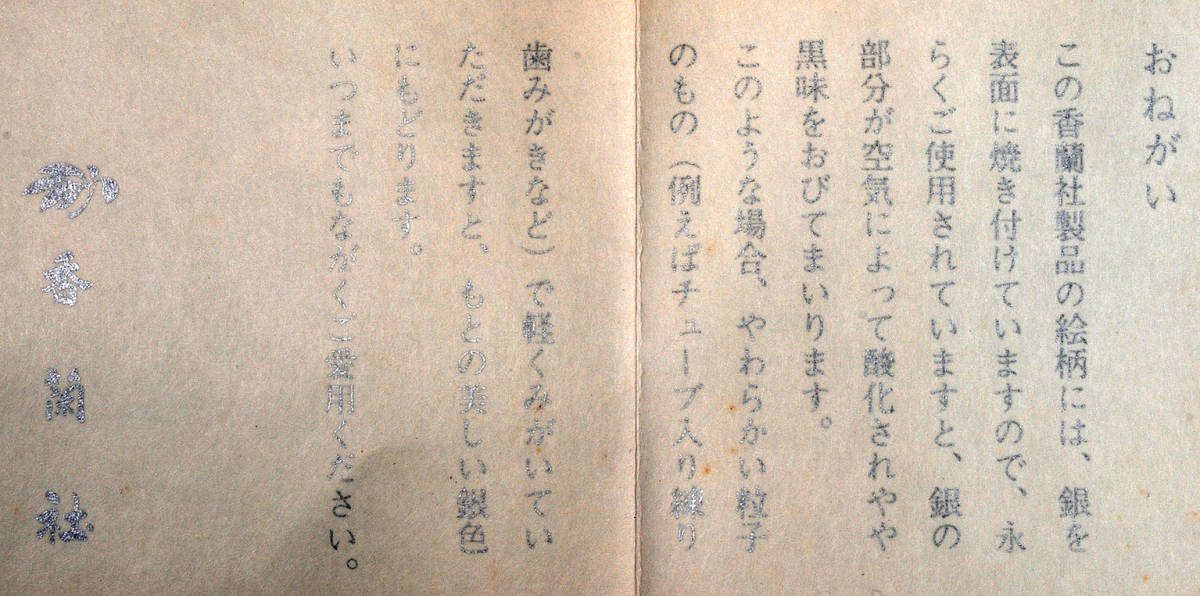 おねがい
この香蘭社製品の絵柄には、銀を
表面に焼き付けていますので、永
らくご使用されていますと、銀の
部分が空気によって酸化されやや
黒味をおびてまいります。
このような場合、やわらかい粒子
のもの（例えばチューブ入り練り
歯みがきなど）で軽くみがいてい
ただきますと、もとの美しい銀色
にもどります。
いつまでもながくご愛用ください。
香蘭社